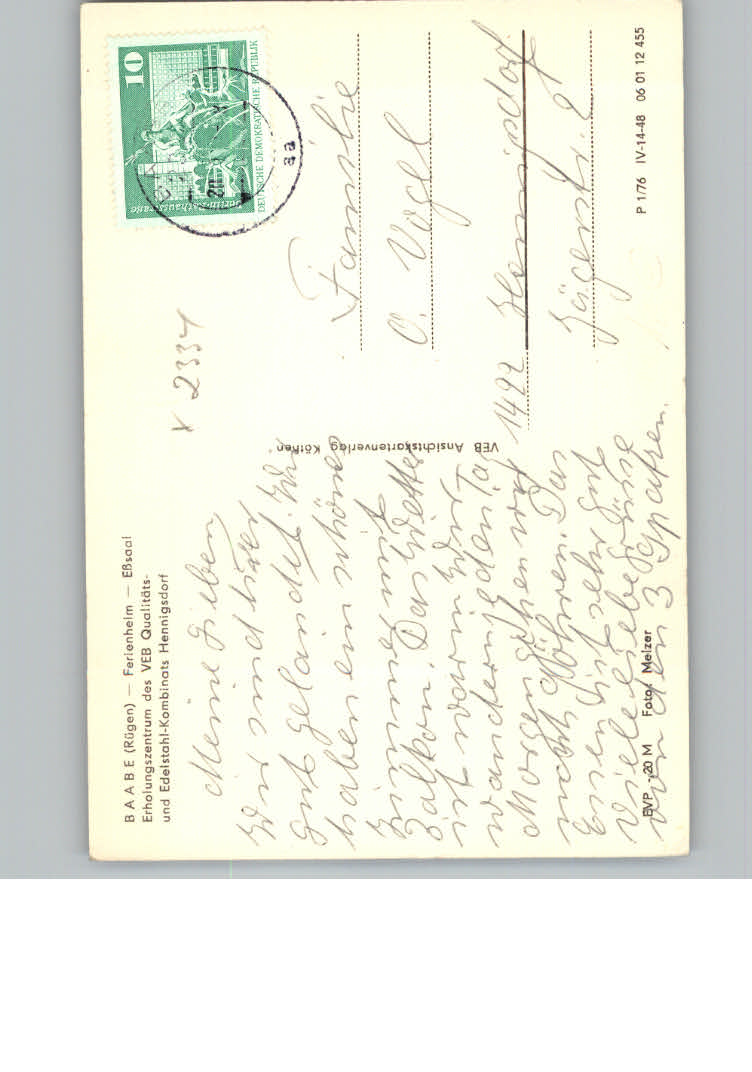 BAABE (Rügen) — Ferienheim — Eßsaal
Erholungszentrum des VEB Qualitäts-
und Edelstahl-Kombinats Hennigsdorf
Meine Lieben
Wir sind hier
gut gelandet. Wir
haben ein schönes
Zimmer mit
Balkon. Das Wetter
ist warm. Wir
wandern jeden Tag
Morgen gehen wir
nach Göhren. Das
Essen ist sehr gut
Viele liebe Grüße
von den 3 Spatzen.
EVP -,20 M Foto: Melzer
VEB Ansichtskartenverlag Köthen
V 2334
10
Berlin-Rathausstraße
DEUTSCHE DEMOKRATISCHE REPUBLIK
aa
Familie
O. Vogel
1422 Hennigsdorf
Jägerstr. 2
P 1/76 IV-14-48 06 01 12 455